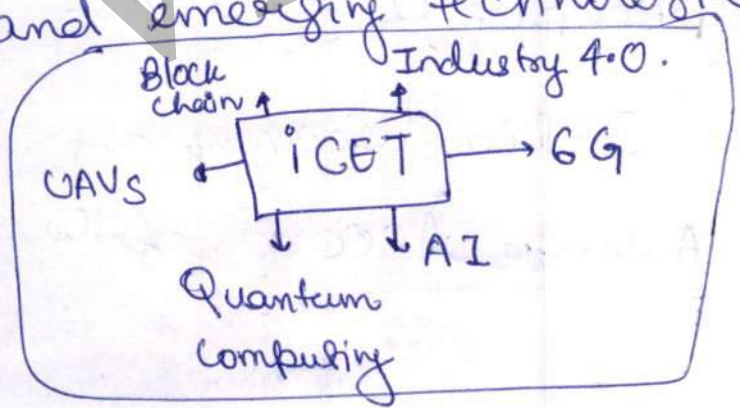 and emerging technologi
Block
chain
Industry 4.0.
UAVs
iCET
6G
AI
Quantum
computing